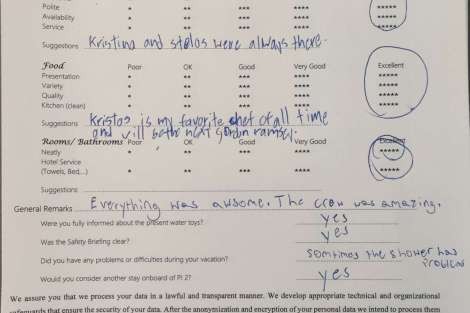 Polite * ** *** **** *****
Availability * ** *** **** *****
Service * ** *** **** *****
Suggestions Kristina and stelos were always there.
Food Poor OK Good Very Good Excellent
Presentation * ** *** **** *****
Variety * ** *** **** *****
Quality * ** *** **** *****
Kitchen (clean) * ** *** **** *****
Suggestions Kristos is my favorite chef of all time
and will gordon ramsey.
Rooms/ Bathrooms Poor OK Good Very Good Excellent
Neatly * ** *** **** *****
Hotel Service
(Towels, Bed,...) * ** *** **** *****
Suggestions
General Remarks Everything was awsome. The crew was amazing.
Were you fully informed about the present water toys? yes
Was the Safety Briefing clear? yes
Did you have any problems or difficulties during your vacation? somtimes the shower has
problems
Would you consider another stay onboard of Pi 2? yes
We assure you that we process your data in a lawful and transparent manner. We develop appropriate technical and organizational
safeguards that ensure the security of your data. After the anonymization and encryption of your personal data we intend to process them